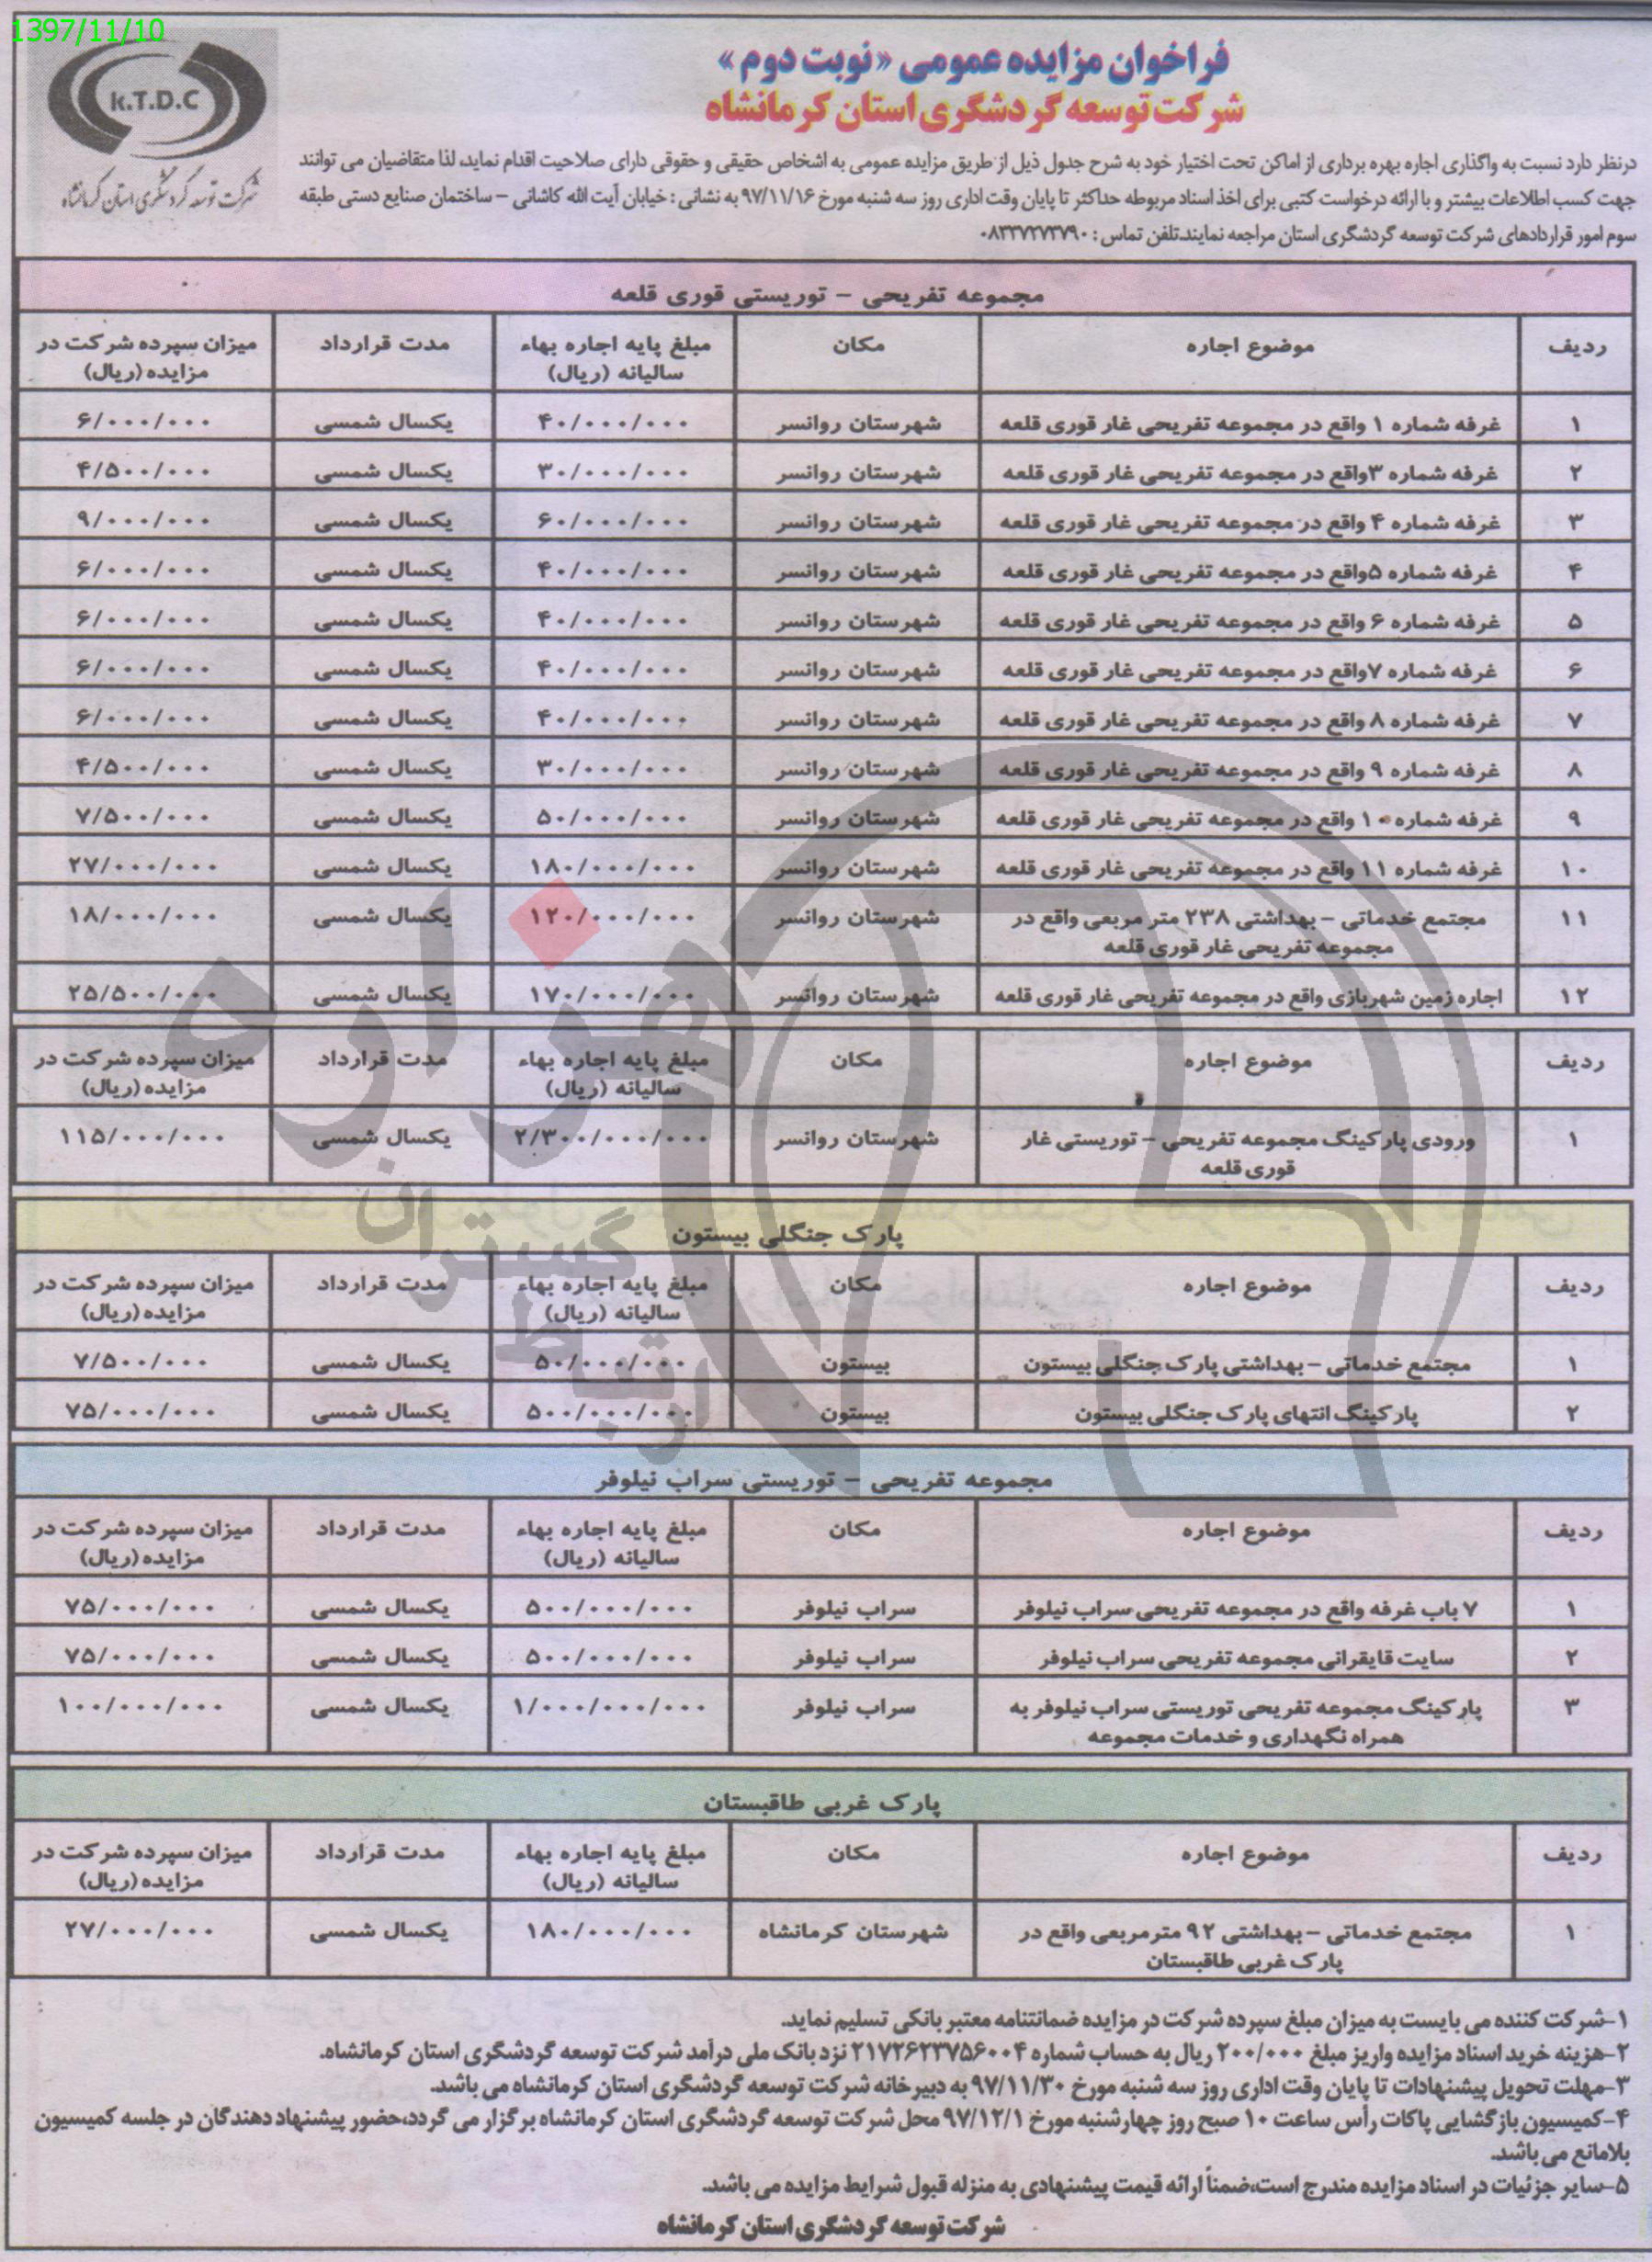 1397/11/10
فراخوان مزایده عمومی «نوبت دوم»
شرکت توسعه گردشگری استان کرمانشاه
K.T.D.C
شرکت توسعه گردشگری استان کرمانشاه
درنظر دارد نسبت به واگذاری اجاره بهره برداری از اماکن تحت اختیار خود به شرح جدول ذیل از طریق مزایده عمومی به اشخاص حقیقی و حقوقی دارای صلاحیت اقدام نماید، لذا متقاضیان می توانند
جهت کسب اطلاعات بیشتر و با ارائه درخواست کتبی برای اخذ اسناد مربوطه حداکثر تا پایان وقت اداری روز سه شنبه مورخ ۹۷/۱۱/۱۶ به نشانی : خیابان آیت الله کاشانی - ساختمان صنایع دستی طبقه
سوم امور قراردادهای شرکت توسعه گردشگری استان مراجعه نمایند.تلفن تماس : ۰۸۳۳۷۲۷۳۷۹۰
مجموعه تفریحی - توریستی قوری قلعه
ردیف موضوع اجاره مکان مبلغ پایه اجاره بهاء سالیانه (ریال) مدت قرارداد میزان سپرده شرکت در مزایده (ریال)
۱ غرفه شماره ۱ واقع در مجموعه تفریحی غار قوری قلعه شهرستان روانسر ۴۰/۰۰۰/۰۰۰ یکسال شمسی ۶/۰۰۰/۰۰۰
۲ غرفه شماره ۳واقع در مجموعه تفریحی غار قوری قلعه شهرستان روانسر ۳۰/۰۰۰/۰۰۰ یکسال شمسی ۴/۵۰۰/۰۰۰
۳ غرفه شماره ۴ واقع در مجموعه تفریحی غار قوری قلعه شهرستان روانسر ۶۰/۰۰۰/۰۰۰ یکسال شمسی ۹/۰۰۰/۰۰۰
۴ غرفه شماره ۵واقع در مجموعه تفریحی غار قوری قلعه شهرستان روانسر ۴۰/۰۰۰/۰۰۰ یکسال شمسی ۶/۰۰۰/۰۰۰
۵ غرفه شماره ۶ واقع در مجموعه تفریحی غار قوری قلعه شهرستان روانسر ۴۰/۰۰۰/۰۰۰ یکسال شمسی ۶/۰۰۰/۰۰۰
۶ غرفه شماره ۷واقع در مجموعه تفریحی غار قوری قلعه شهرستان روانسر ۴۰/۰۰۰/۰۰۰ یکسال شمسی ۶/۰۰۰/۰۰۰
۷ غرفه شماره ۸ واقع در مجموعه تفریحی غار قوری قلعه شهرستان روانسر ۴۰/۰۰۰/۰۰۰ یکسال شمسی ۶/۰۰۰/۰۰۰
۸ غرفه شماره ۹ واقع در مجموعه تفریحی غار قوری قلعه شهرستان روانسر ۳۰/۰۰۰/۰۰۰ یکسال شمسی ۴/۵۰۰/۰۰۰
۹ غرفه شماره ۱۰ واقع در مجموعه تفریحی غار قوری قلعه شهرستان روانسر ۵۰/۰۰۰/۰۰۰ یکسال شمسی ۷/۵۰۰/۰۰۰
۱۰ غرفه شماره ۱۱ واقع در مجموعه تفریحی غار قوری قلعه شهرستان روانسر ۱۸۰/۰۰۰/۰۰۰ یکسال شمسی ۲۷/۰۰۰/۰۰۰
۱۱ مجتمع خدماتی - بهداشتی ۲۳۸ متر مربعی واقع در مجموعه تفریحی غار قوری قلعه شهرستان روانسر ۱۲۰/۰۰۰/۰۰۰ یکسال شمسی ۱۸/۰۰۰/۰۰۰
۱۲ اجاره زمین شهربازی واقع در مجموعه تفریحی غار قوری قلعه شهرستان روانسر ۱۷۰/۰۰۰/۰۰۰ یکسال شمسی ۲۵/۵۰۰/۰۰۰
ردیف موضوع اجاره مکان مبلغ پایه اجاره بهاء سالیانه (ریال) مدت قرارداد میزان سپرده شرکت در مزایده (ریال)
۱ ورودی پارکینگ مجموعه تفریحی - توریستی غار قوری قلعه شهرستان روانسر ۲/۳۰۰/۰۰۰/۰۰۰ یکسال شمسی ۱۱۵/۰۰۰/۰۰۰
پارک جنگلی بیستون
ردیف موضوع اجاره مکان مبلغ پایه اجاره بهاء سالیانه (ریال) مدت قرارداد میزان سپرده شرکت در مزایده (ریال)
۱ مجتمع خدماتی - بهداشتی پارک جنگلی بیستون بیستون ۵۰/۰۰۰/۰۰۰ یکسال شمسی ۷/۵۰۰/۰۰۰
۲ پارکینگ انتهای پارک جنگلی بیستون بیستون ۵۰۰/۰۰۰/۰۰۰ یکسال شمسی ۷۵/۰۰۰/۰۰۰
مجموعه تفریحی - توریستی سراب نیلوفر
ردیف موضوع اجاره مکان مبلغ پایه اجاره بهاء سالیانه (ریال) مدت قرارداد میزان سپرده شرکت در مزایده (ریال)
۱ ۷ باب غرفه واقع در مجموعه تفریحی سراب نیلوفر سراب نیلوفر ۵۰۰/۰۰۰/۰۰۰ یکسال شمسی ۷۵/۰۰۰/۰۰۰
۲ سایت قایقرانی مجموعه تفریحی سراب نیلوفر سراب نیلوفر ۵۰۰/۰۰۰/۰۰۰ یکسال شمسی ۷۵/۰۰۰/۰۰۰
۳ پارکینگ مجموعه تفریحی توریستی سراب نیلوفر به همراه نگهداری و خدمات مجموعه سراب نیلوفر ۱/۰۰۰/۰۰۰/۰۰۰ یکسال شمسی ۱۰۰/۰۰۰/۰۰۰
پارک غربی طاقبستان
ردیف موضوع اجاره مکان مبلغ پایه اجاره بهاء سالیانه (ریال) مدت قرارداد میزان سپرده شرکت در مزایده (ریال)
۱ مجتمع خدماتی - بهداشتی ۹۲ مترمربعی واقع در پارک غربی طاقبستان شهرستان کرمانشاه ۱۸۰/۰۰۰/۰۰۰ یکسال شمسی ۲۷/۰۰۰/۰۰۰
۱-شرکت کننده می بایست به میزان مبلغ سپرده شرکت در مزایده ضمانتنامه معتبر بانکی تسلیم نماید.
۲-هزینه خرید اسناد مزایده واریز مبلغ ۲۰۰/۰۰۰ ریال به حساب شماره ۲۱۷۲۶۲۳۷۵۶۰۰۴ نزد بانک ملی درآمد شرکت توسعه گردشگری استان کرمانشاه.
۳-مهلت تحویل پیشنهادات تا پایان وقت اداری روز سه شنبه مورخ ۹۷/۱۱/۳۰ به دبیرخانه شرکت توسعه گردشگری استان کرمانشاه می باشد.
۴-کمیسیون بازگشایی پاکات رأس ساعت ۱۰ صبح روز چهارشنبه مورخ ۹۷/۱۲/۱ محل شرکت توسعه گردشگری استان کرمانشاه برگزار می گردد،حضور پیشنهاد دهندگان در جلسه کمیسیون
بلامانع می باشد.
۵-سایر جزئیات در اسناد مزایده مندرج است،ضمناً ارائه قیمت پیشنهادی به منزله قبول شرایط مزایده می باشد.
شرکت توسعه گردشگری استان کرمانشاه
هزاره
ارتباط گستران